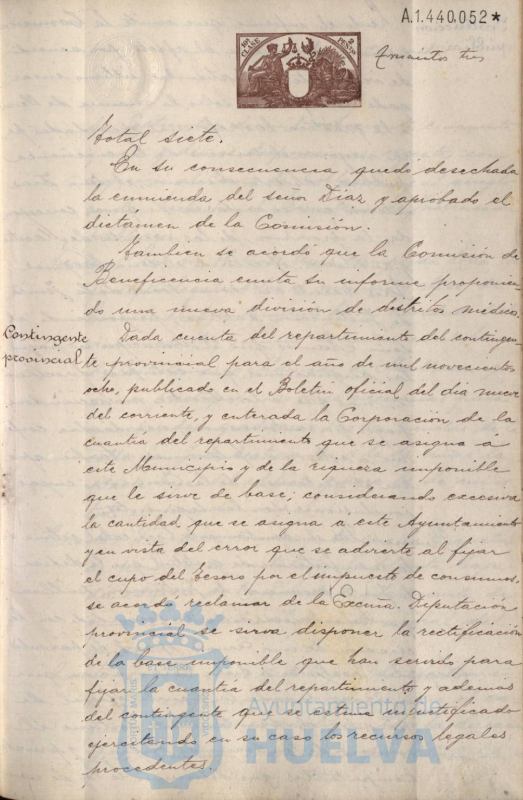 A.1.440.052*
10ª CLASE
2 PESETAS
Trescientos tres
Total siete.
En su consecuencia quedó desechada
la enmienda del señor Díaz y aprobado el
dictámen de la Comisión.
Tambien se acordó que la Comisión de
Beneficencia emita su informe proponien-
do una nueva división de distritos médicos.
Contingente
provincial
Dada cuenta del repartimiento del contingen-
te provincial para el año de mil novecientos
ocho, publicado en el Boletin oficial del dia nueve
del corriente, y enterada la Corporación de la
cuantía del repartimiento que se asigna á
este Municipio y de la riqueza imponible
que le sirve de base; considerando excesiva
la cantidad que se asigna a este Ayuntamiento
y en vista del error que se advierte al fijar
el cupo del Tesoro por el impuesto de consumos,
se acordó reclamar de la Excma. Diputación
provincial se sirva disponer la rectificación
de la base imponible que han servido para
fijar la cuantía del repartimiento y ademas
del contingente que se estime injustificado
ejercitando en su caso los recursos legales
procedentes.
Ayuntamiento de
HUELVA